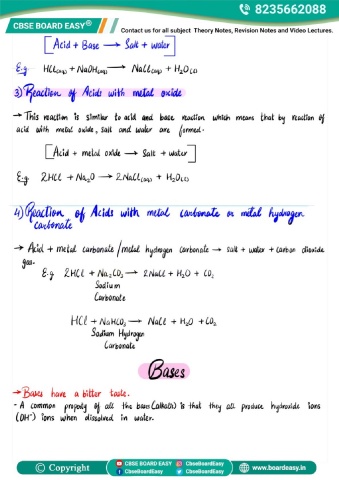 8235662088
CBSE BOARD EASY®
Contact us for all subject Theory Notes, Revision Notes and Video Lectures.
[Acid + Base → Salt + water]
E.g HCl(aq) + NaOH(aq) → NaCl(aq) + H₂O(l)
3) Reaction of Acids with metal oxide
→ This reaction is similar to acid and base reaction which means that by reaction of
acid with metal oxide, salt and water are formed.
[Acid + metal oxide → Salt + water]
E.g 2HCl + Na₂O → 2NaCl(aq) + H₂O(l)
4) Reaction of Acids with metal carbonate or metal hydrogen
carbonate
→ Acid + metal carbonate/metal hydrogen carbonate → salt + water + carbon dioxide
gas.
E.g 2HCl + Na₂CO₃ → 2NaCl + H₂O + CO₂
Sodium
Carbonate
HCl + NaHCO₃ → NaCl + H₂O + CO₂
Sodium Hydrogen
Carbonate
Bases
→ Bases have a bitter taste.
- A common property of all the bases (alkalis) is that they all produce hydroxide ions
(OH⁻) ions when dissolved in water.
© Copyright
CBSE BOARD EASY CbseBoardEasy
CbseBoardEasy CbseBoardEasy
www.boardeasy.in